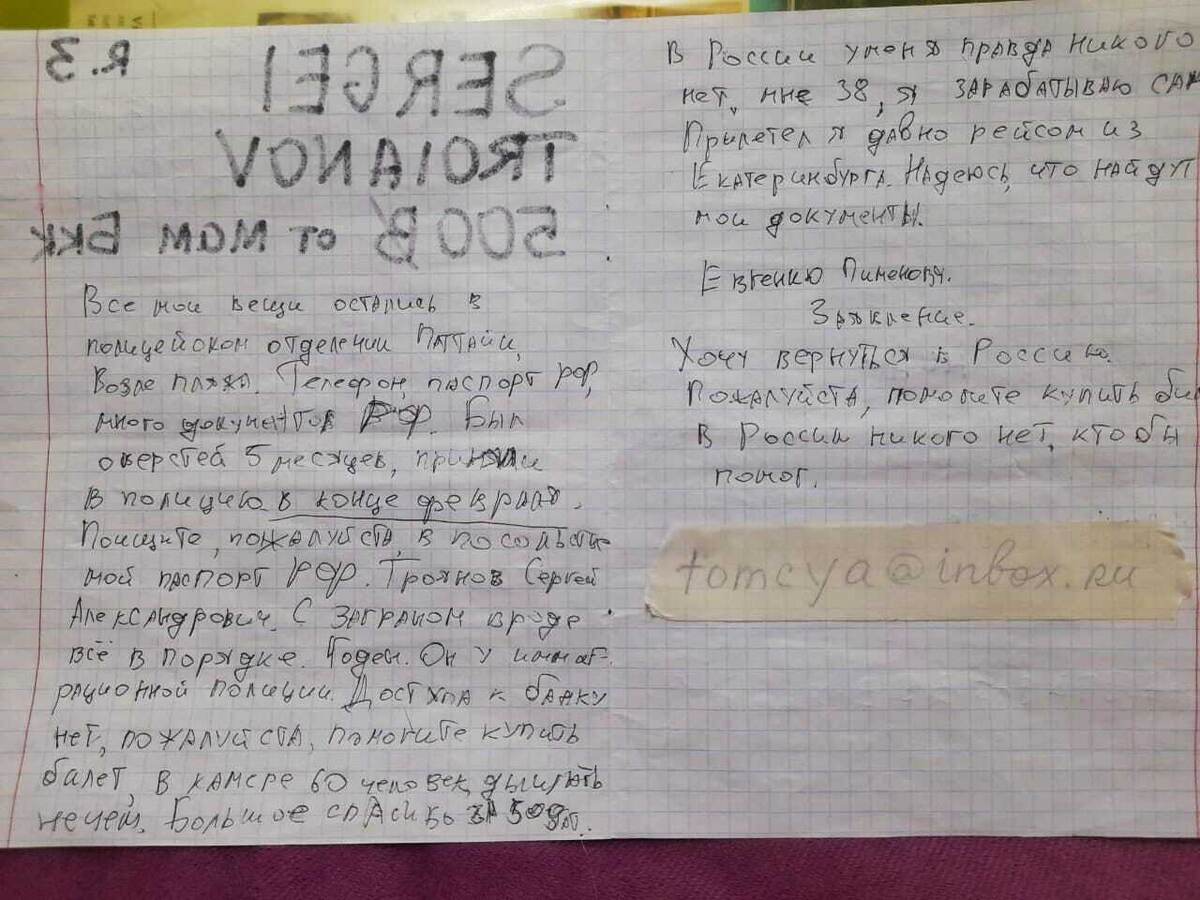 R.3
SERGEI
TROIANOV
500B от МАМ БКК
Все мои вещи остались в
полицейском отделении Паттайи,
Возле пляжа. Телефон, паспорт РФ,
много документов РФ. Был
5 месяцев,
в полицию в конце февраля.
Поищите, пожалуйста, в посольстве
мой паспорт РФ. Троянов Сергей
Александрович. С заграном вроде
всё в порядке. Годен. Он у иммиг-
рационной полиции. Доступа к банку
нет, пожалуйста, помогите купить
билет, в камере 60 человек, дышать
нечем. Большое спасибо за 500
В России у меня правда никого
нет, мне 38, я зарабатываю сам
Прилетел я давно рейсом из
Екатеринбурга. Надеюсь, что найдут
мои документы.
Евгению
Заявление.
Хочу вернуться в Россию.
Пожалуйста, помогите купить би
В России никого нет, кто бы
помог.
tomcya@inbox.ru